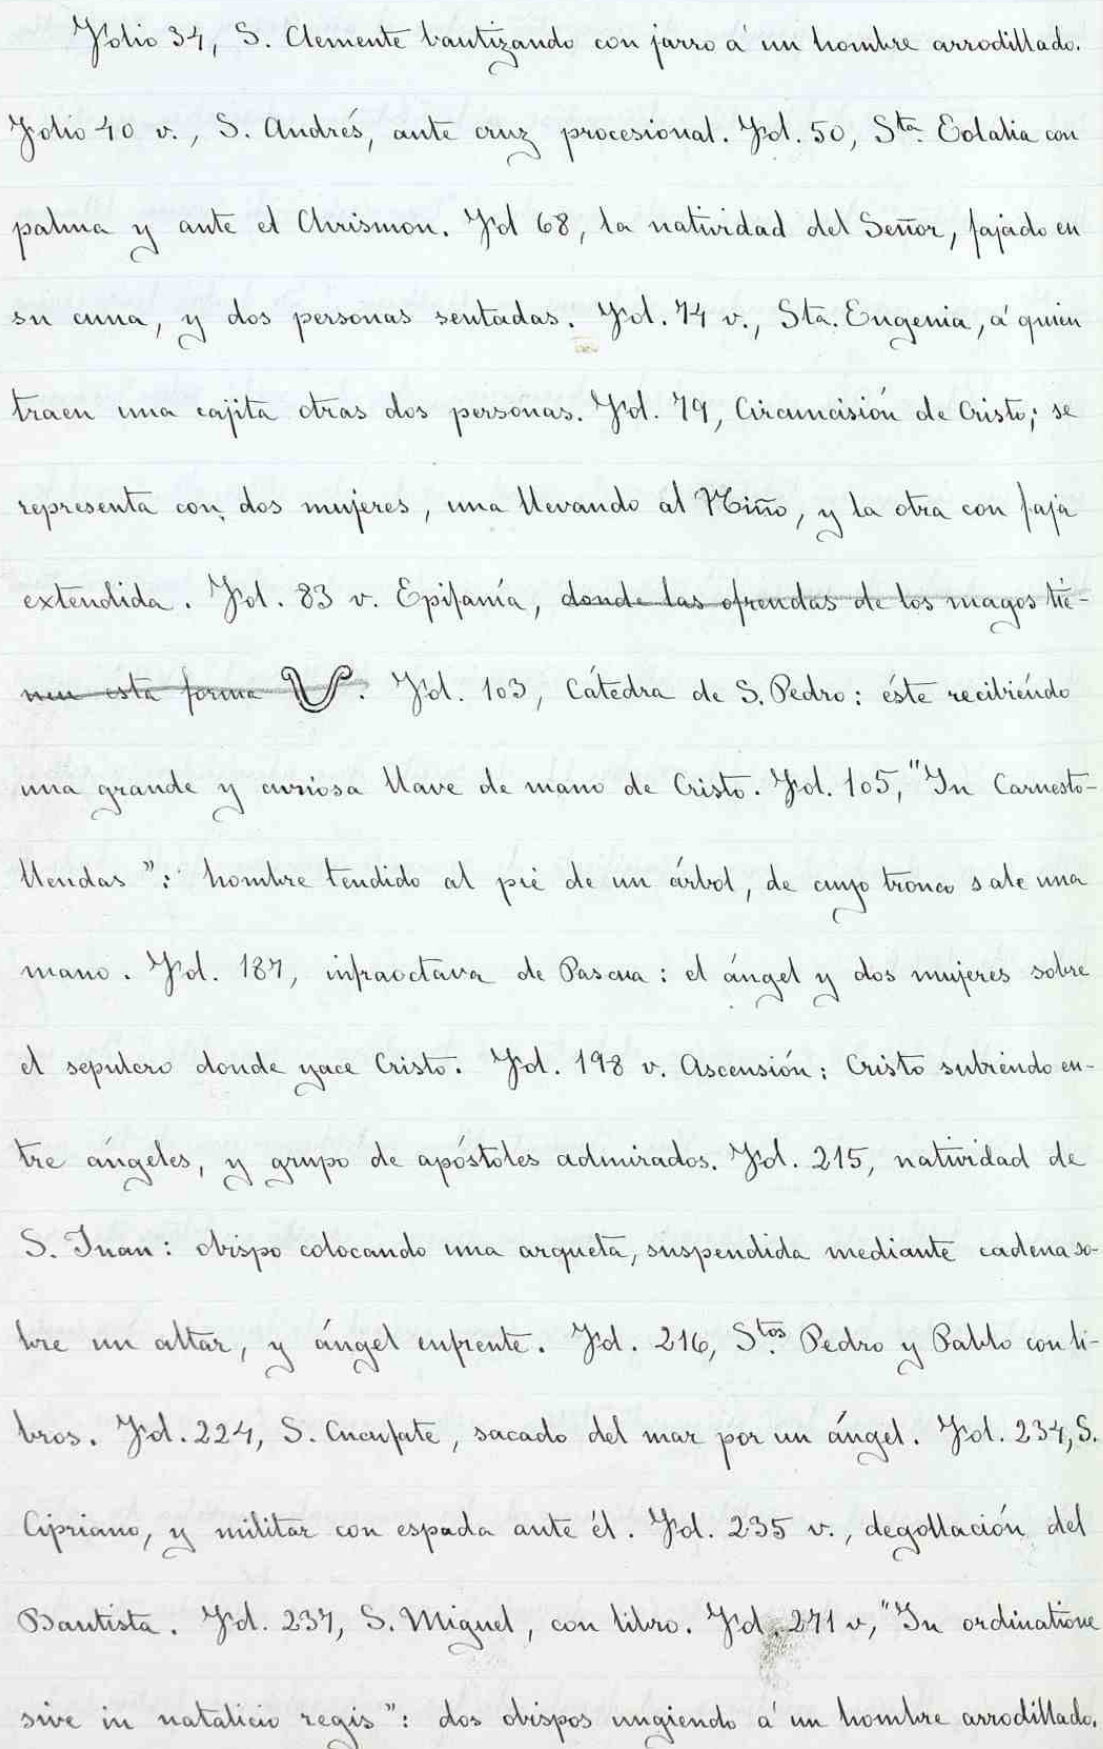 Folio 34, S. Clemente bautizando con jarro á un hombre arrodillado.
Folio 40 v., S. Andrés, ante cruz procesional. Fol. 50, Sta. Eolalia con
palma y ante el Chrismon. Fol 68, la natividad del Señor, fajado en
su cuna, y dos personas sentadas. Fol. 74 v., Sta. Eugenia, á quien
traen una cajita otras dos personas. Fol. 79, Circuncisión de Cristo; se
representa con dos mujeres, una llevando al Niño, y la otra con faja
extendida. Fol. 83 v. Epifanía, donde las ofrendas de los magos tie-
nen esta forma. Fol. 103, Cátedra de S. Pedro: éste recibiendo
una grande y curiosa llave de mano de Cristo. Fol. 105, "In Carnesto-
llendas": hombre tendido al pié de un árbol, de cuyo tronco sale una
mano. Fol. 187, infraoctava de Pascua: el ángel y dos mujeres sobre
el sepulcro donde yace Cristo. Fol. 198 v. Ascensión: Cristo subiendo en-
tre ángeles, y grupo de apóstoles admirados. Fol. 215, natividad de
S. Juan: obispo colocando una arqueta, suspendida mediante cadena so-
bre un altar, y ángel enfrente. Fol. 216, Stos. Pedro y Pablo con li-
bros. Fol. 224, S. Cucufate, sacado del mar por un ángel. Fol. 234, S.
Cipriano, y militar con espada ante él. Fol. 235 v., degollación del
Bautista. Fol. 237, S. Miguel, con libro. Fol. 271 v, "In ordinatione
sive in natalicio regis": dos obispos ungiendo á un hombre arrodillado.